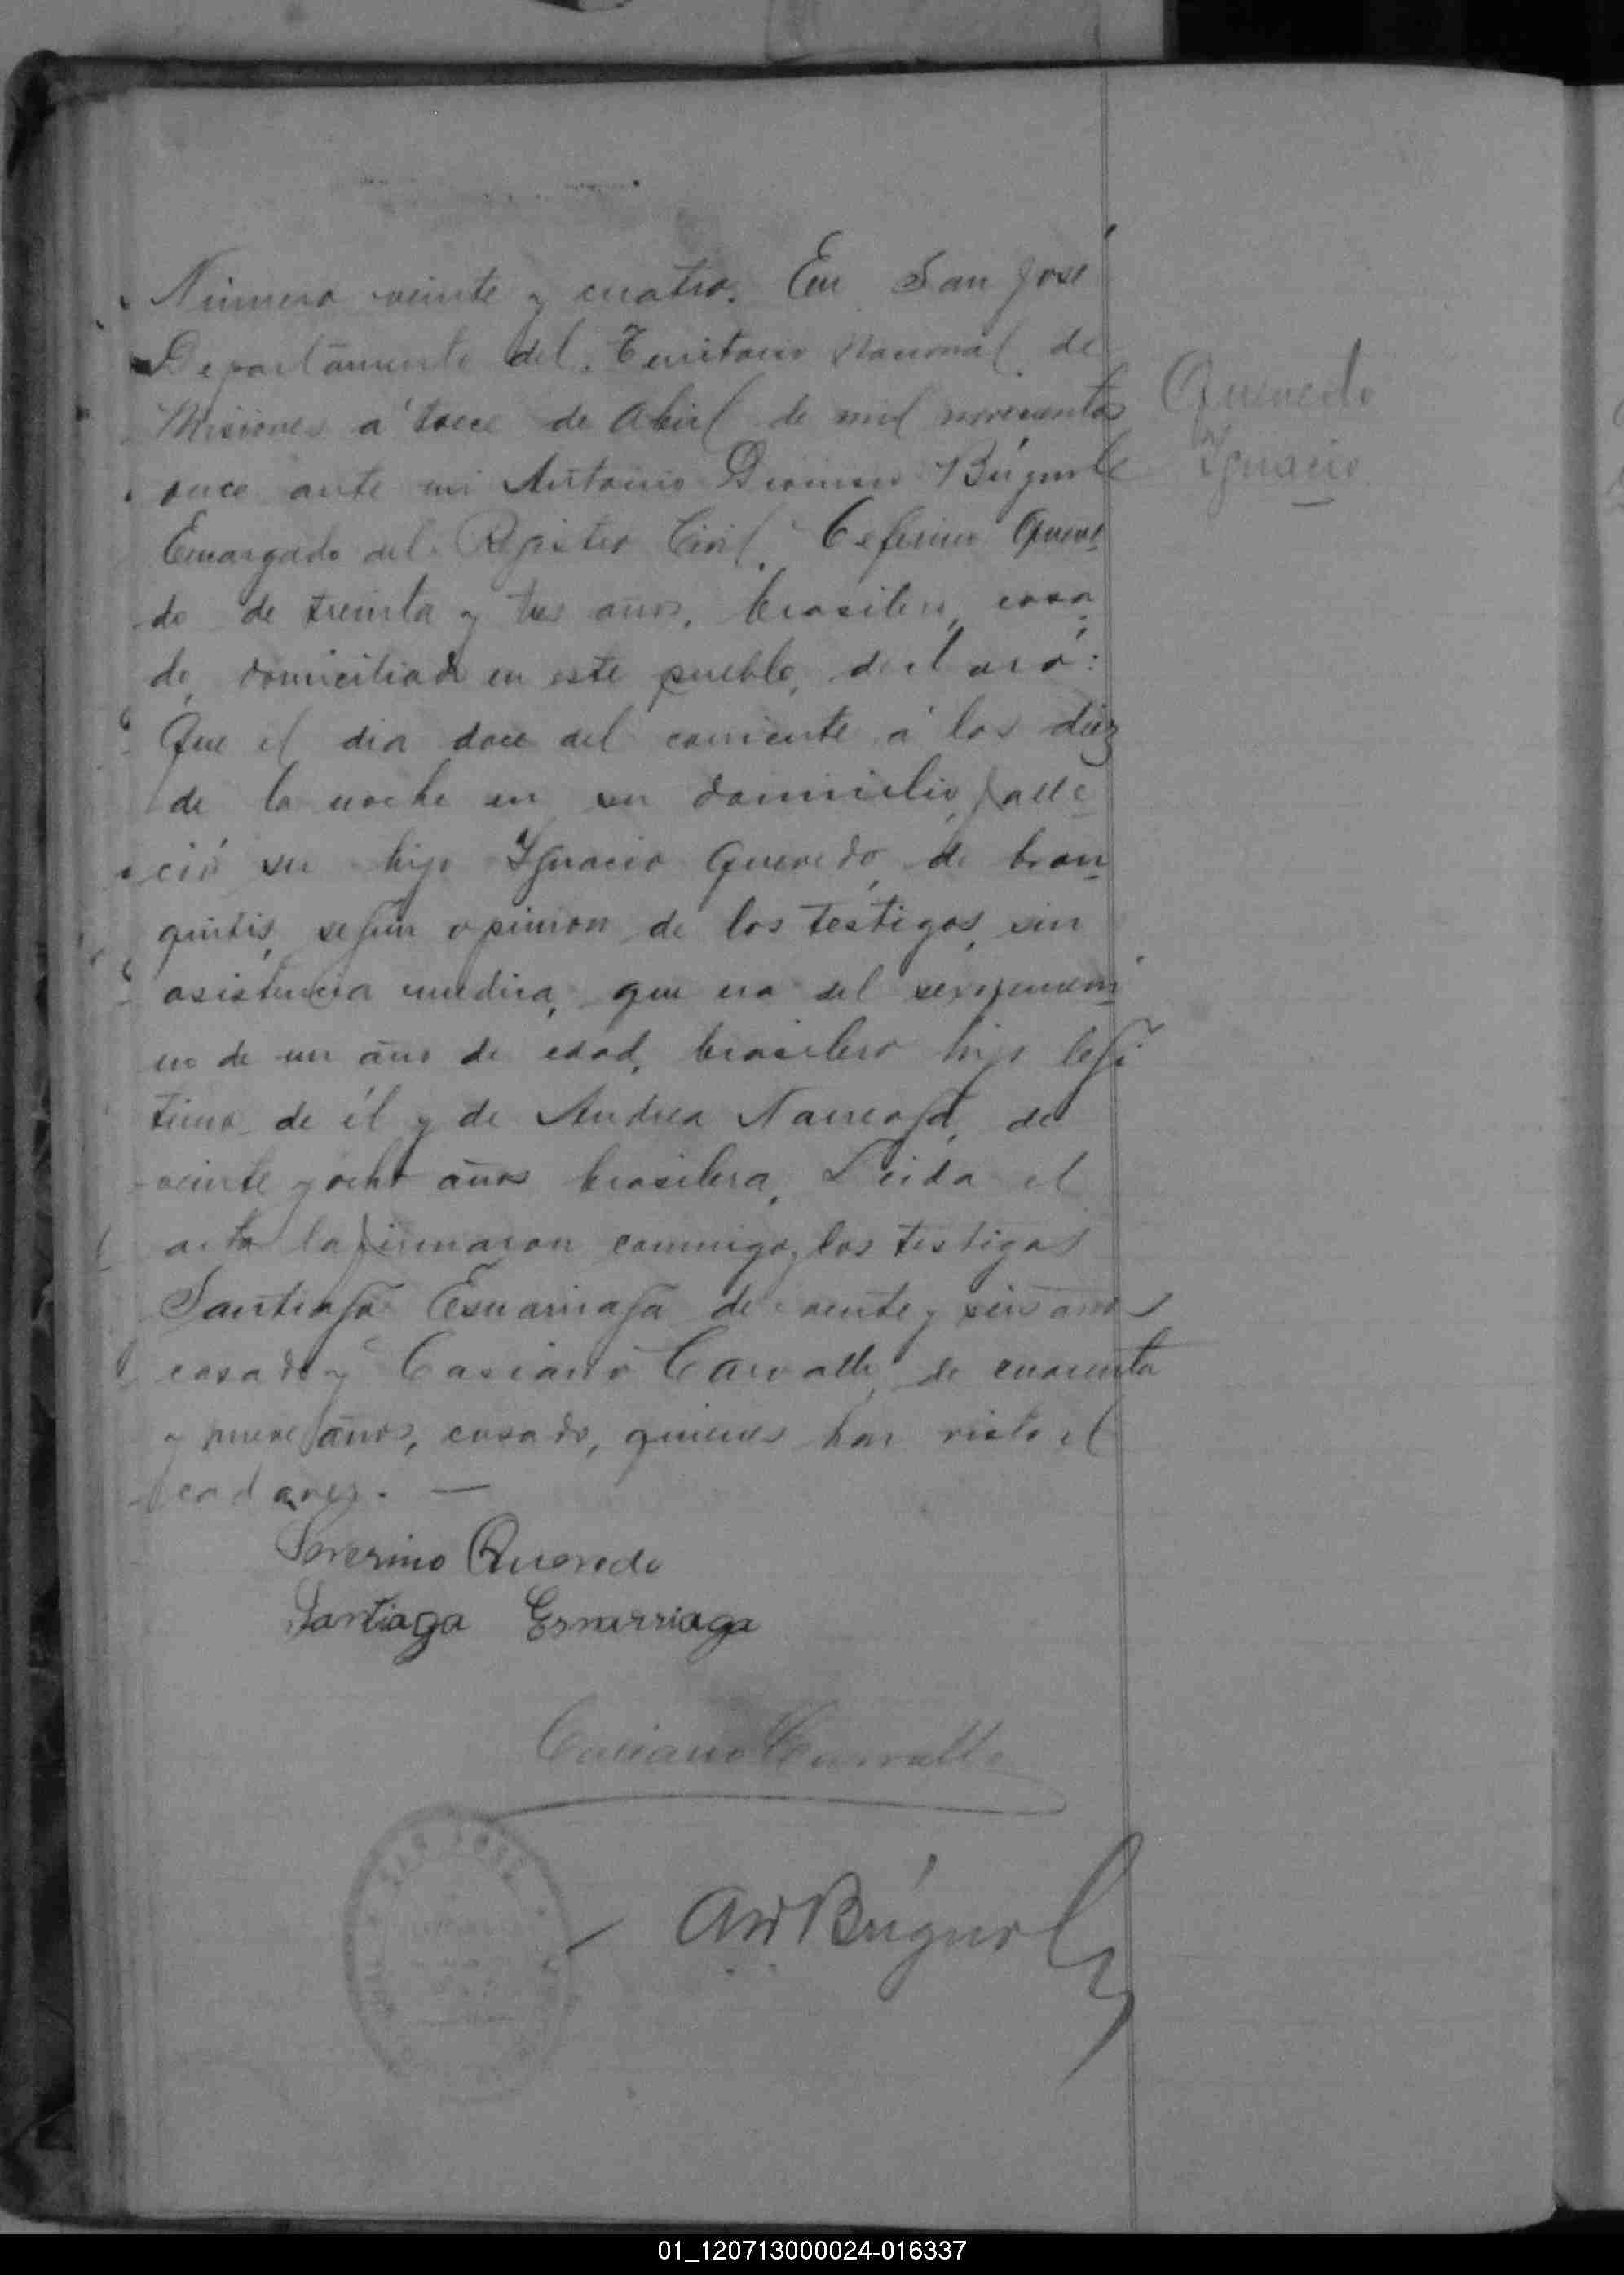 Número veinte y cuatro. En San José
Departamento del Territorio Nacional de
Misiones á trece de Abril de mil novecientos
once ante mi Antonio Dionisio Búgnole
Encargado del Registro Civil, Ceferino Queve
do de treinta y tres años, brasilero, casa
do, domiciliado en este pueblo, declaró:
Que el dia doce del corriente á las diez
de la noche en su domicilio, falle
ció su hijo Ignacio Quevedo, de bron
quitis, según opinion de los testigos, sin
asistencia medica, que era del sexo
no de un año de edad, brasilero hijo legí
timo de él y de Andrea de
veinte y ocho años brasilera. Leida el
acta la firmaron conmigo, los testigos
Santiago Esnarriaga de veinte y seis años
casado y Casiano Carvallo, de cuarenta
y nueve años, casado, quienes han visto el
cadaver. —
Severino Quevedo
Santiago Esnarriaga
Casiano Carvallo
SAN JOSE
Quevedo
Ignacio
01_120713000024-016337